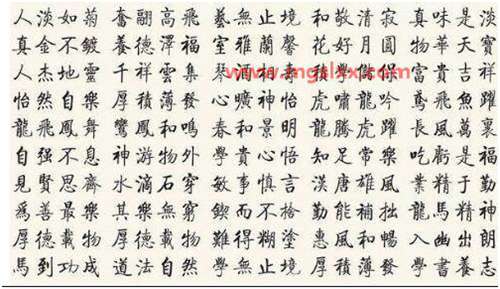 人淡如菊 奮翮高飛 藝無止境 和敬清寂 真味是淡
真金不鍍 養德澤福 室雅蘭馨 花好月圓 物華天寶
人杰地靈 千祥雲集 富貴吉祥
www.mgslxx.com
怡然自樂 厚積薄發 心曠神怡 虎嘯龍吟 鳶飛魚躍
龍飛鳳舞 鸞鳳和鳴 春和景明 龍騰虎躍 長風萬裏
自强不息 神游物外 學貴心悟 知足常樂 吃虧是福
見賢思齊 水滴石穿 敏事慎言 漢唐雄風 業精于勤
爲善最樂 其樂無窮 鍥而不捨 勤能補拙 龍馬精神
厚德載物 厚德載物 難得糊塗 惠風和暢 入幽出朗
馬到功成 道法自然 學無止境 厚積薄發 學書養志